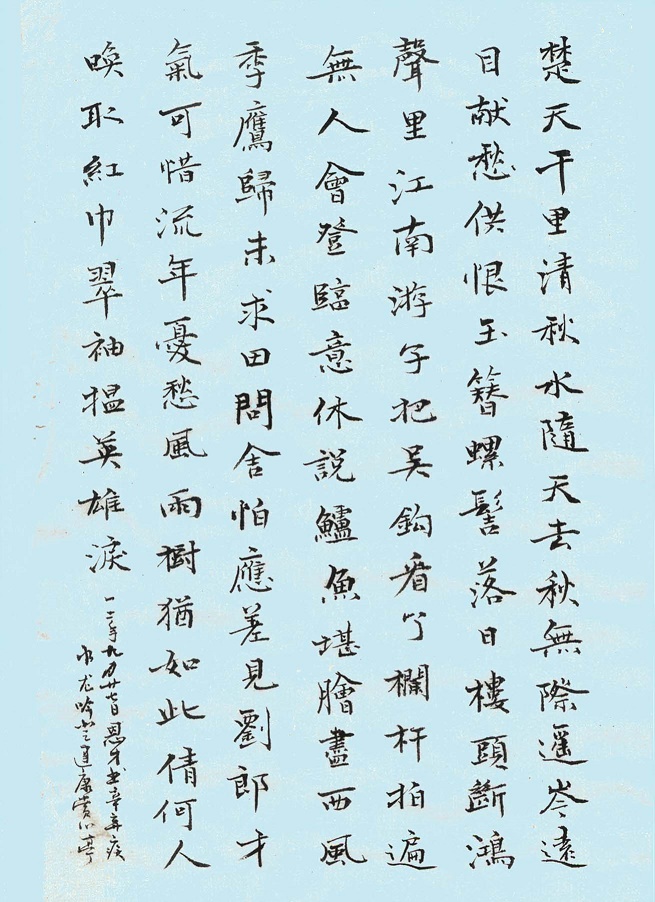 楚天千里清秋水隨天去秋無際遥岑遠
目献愁供恨玉簪螺髻落日樓頭斷鴻
聲里江南游子把吳鈎看了欄杆拍遍
無人會登臨意休說鱸魚堪膾盡西風
季鷹歸未求田問舍怕應羞見劉郎才
氣可惜流年憂愁風雨樹猶如此倩何人
喚取紅巾翠袖揾英雄淚
年九月廿日恩才书辛弃疾
水龙吟登建康赏心亭